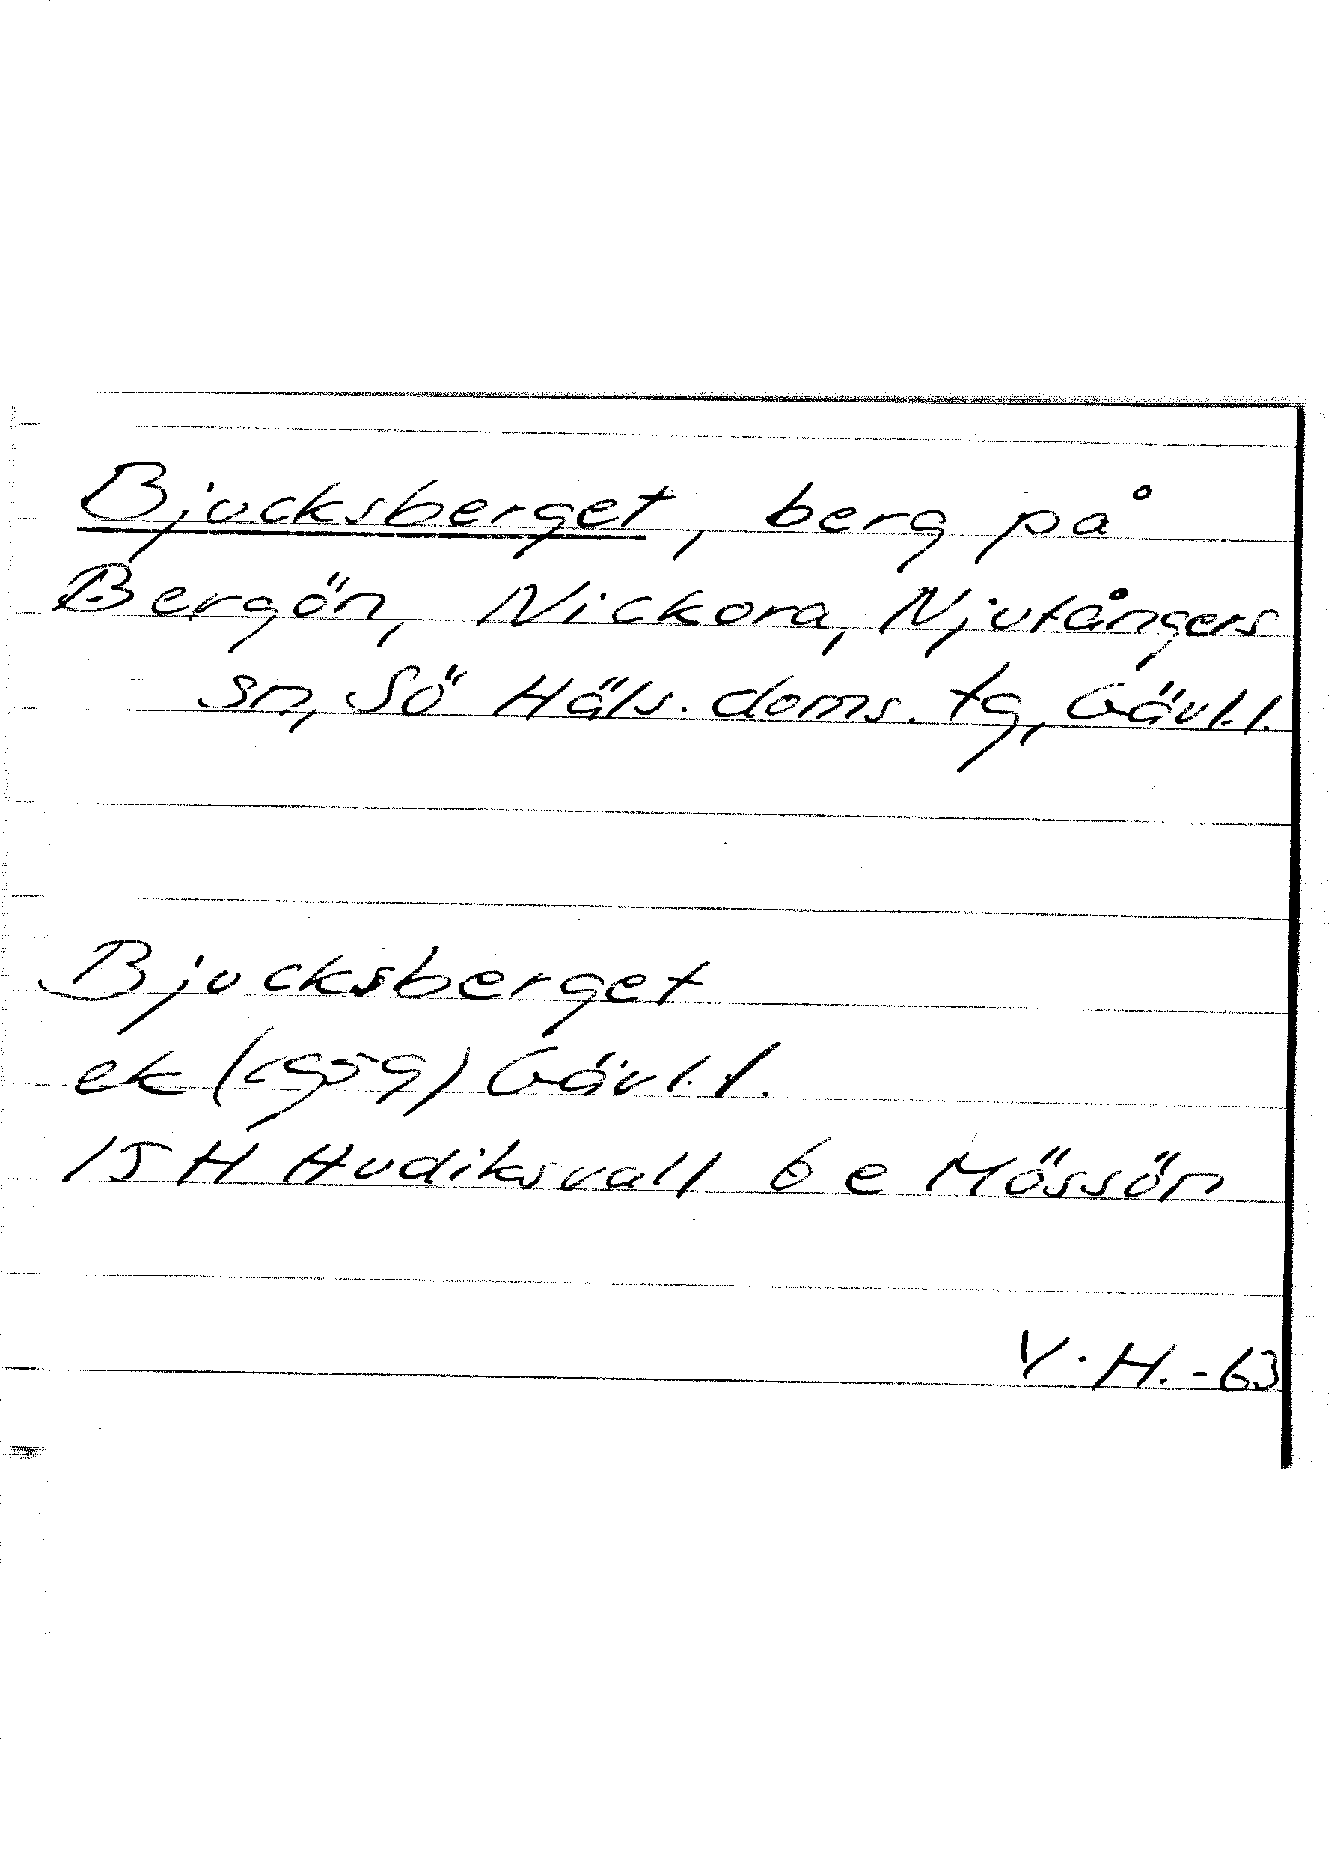 Bjucksberget, berg på
Bergön, Nickora, Njutångers
sn, Sö Häls. doms. tg, Gävl.l.
Bjucksberget
ek (1959) Gävl.l.
15H Hudiksvall 6 e Mössön
Y.H.-63